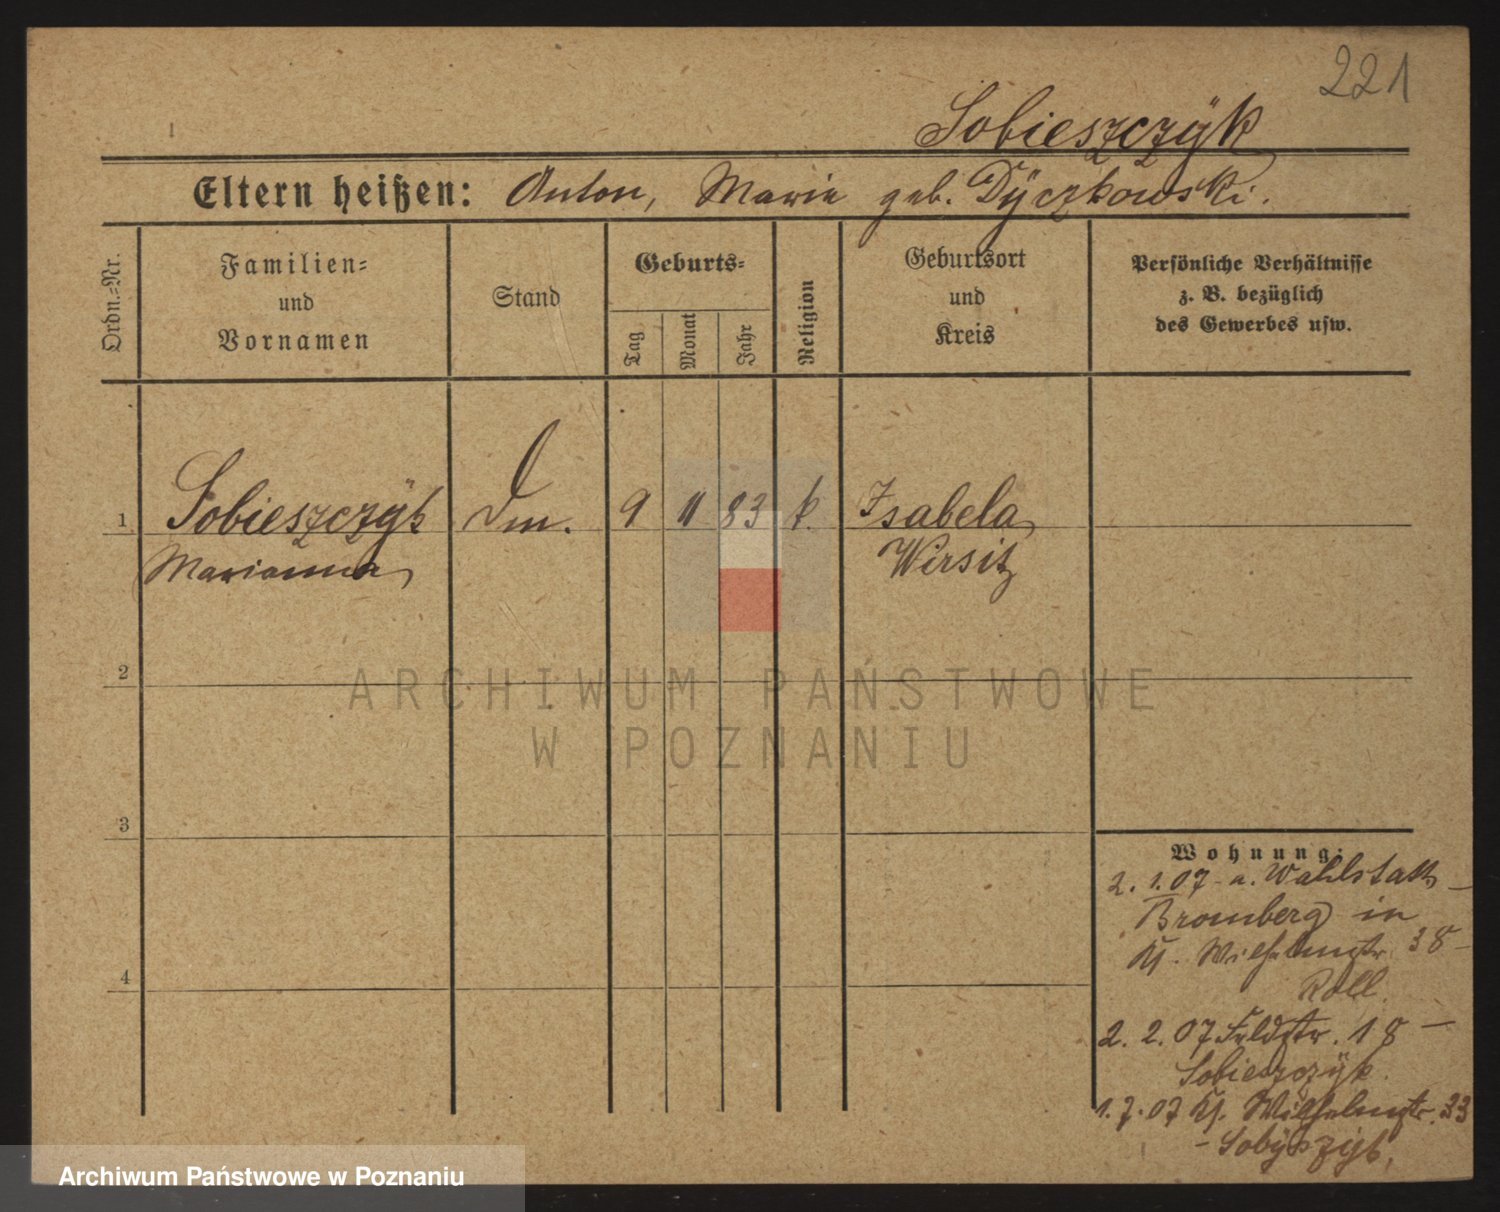 221
Sobieszczÿk
Eltern heißen: Anton, Marie geb. Dÿczkowski.
Ordn.-Nr.
Familien-
und
Vornamen
Stand
Geburts-
Tag
Monat
Jahr
Religion
Geburtsort
und
Kreis
Persönliche Verhältnisse
z. B. bezüglich
des Gewerbes usw.
1 Sobieszczÿk Dm. 9 11 83 k. Isabela
Marianna Wirsitz
2
ARCHIWUM PAŃSTWOWE
W POZNANIU
3
4
Wohnung:
2. 1. 07 - a. Wahlstatt
Bromberg in
Kl. Wilhelmstr. 38 -
Roll.
2. 2. 07 Feldstr. 18 -
Sobieszczÿk.
1. 7. 07 Kl. Wilhelmstr. 33
Archiwum Państwowe w Poznaniu